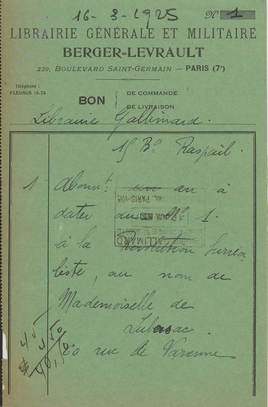 16-3-1925 Nº 1
LIBRAIRIE GÉNÉRALE ET MILITAIRE
BERGER-LEVRAULT
229, BOULEVARD SAINT-GERMAIN — PARIS (7e)
Téléphone :
FLEURUS 15.76
BON DE COMMANDE
DE LIVRAISON
Librairie Gallimard.
15 Bd Raspail.
1 Abont un an à
dater du Nº 1.
à la Révolution Surréa
liste, au nom de
Mademoiselle de
Lubersac
80 rue de Varenne